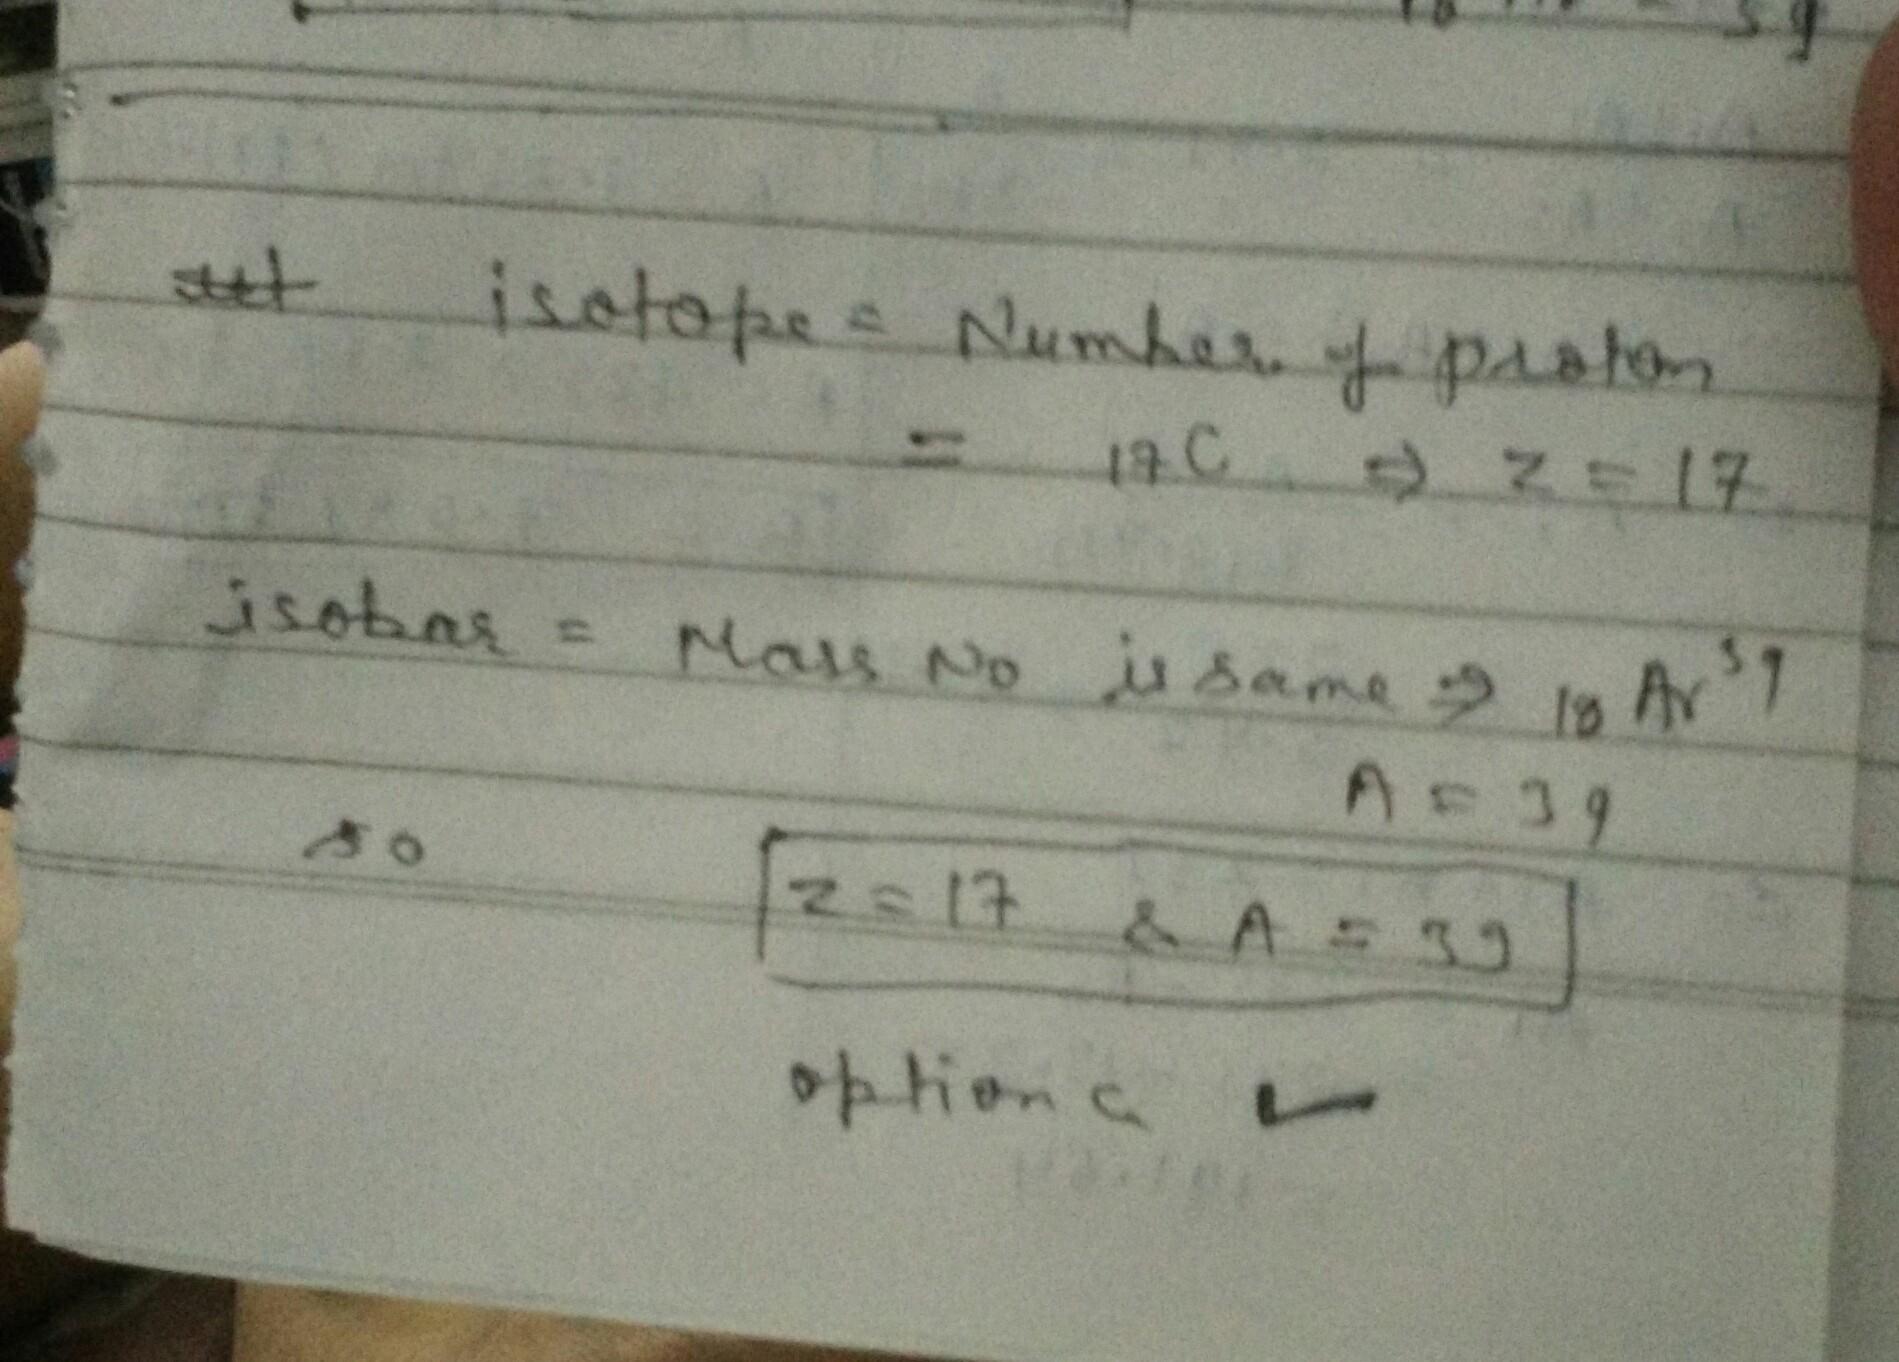 39
isotope = Number of proton
= 17C ⇒ Z = 17
isobar = Mass No is same ⇒ 18Ar³⁹
A = 39
so Z = 17 & A = 39
option c ✓